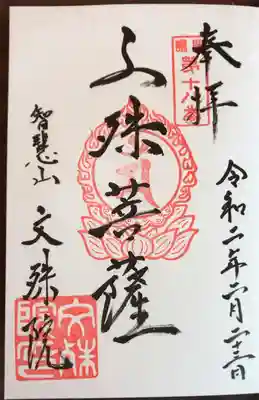 奉拝
第十八番
令和二年二月二十三日
文殊菩薩
智慧山
文殊院
文殊院印